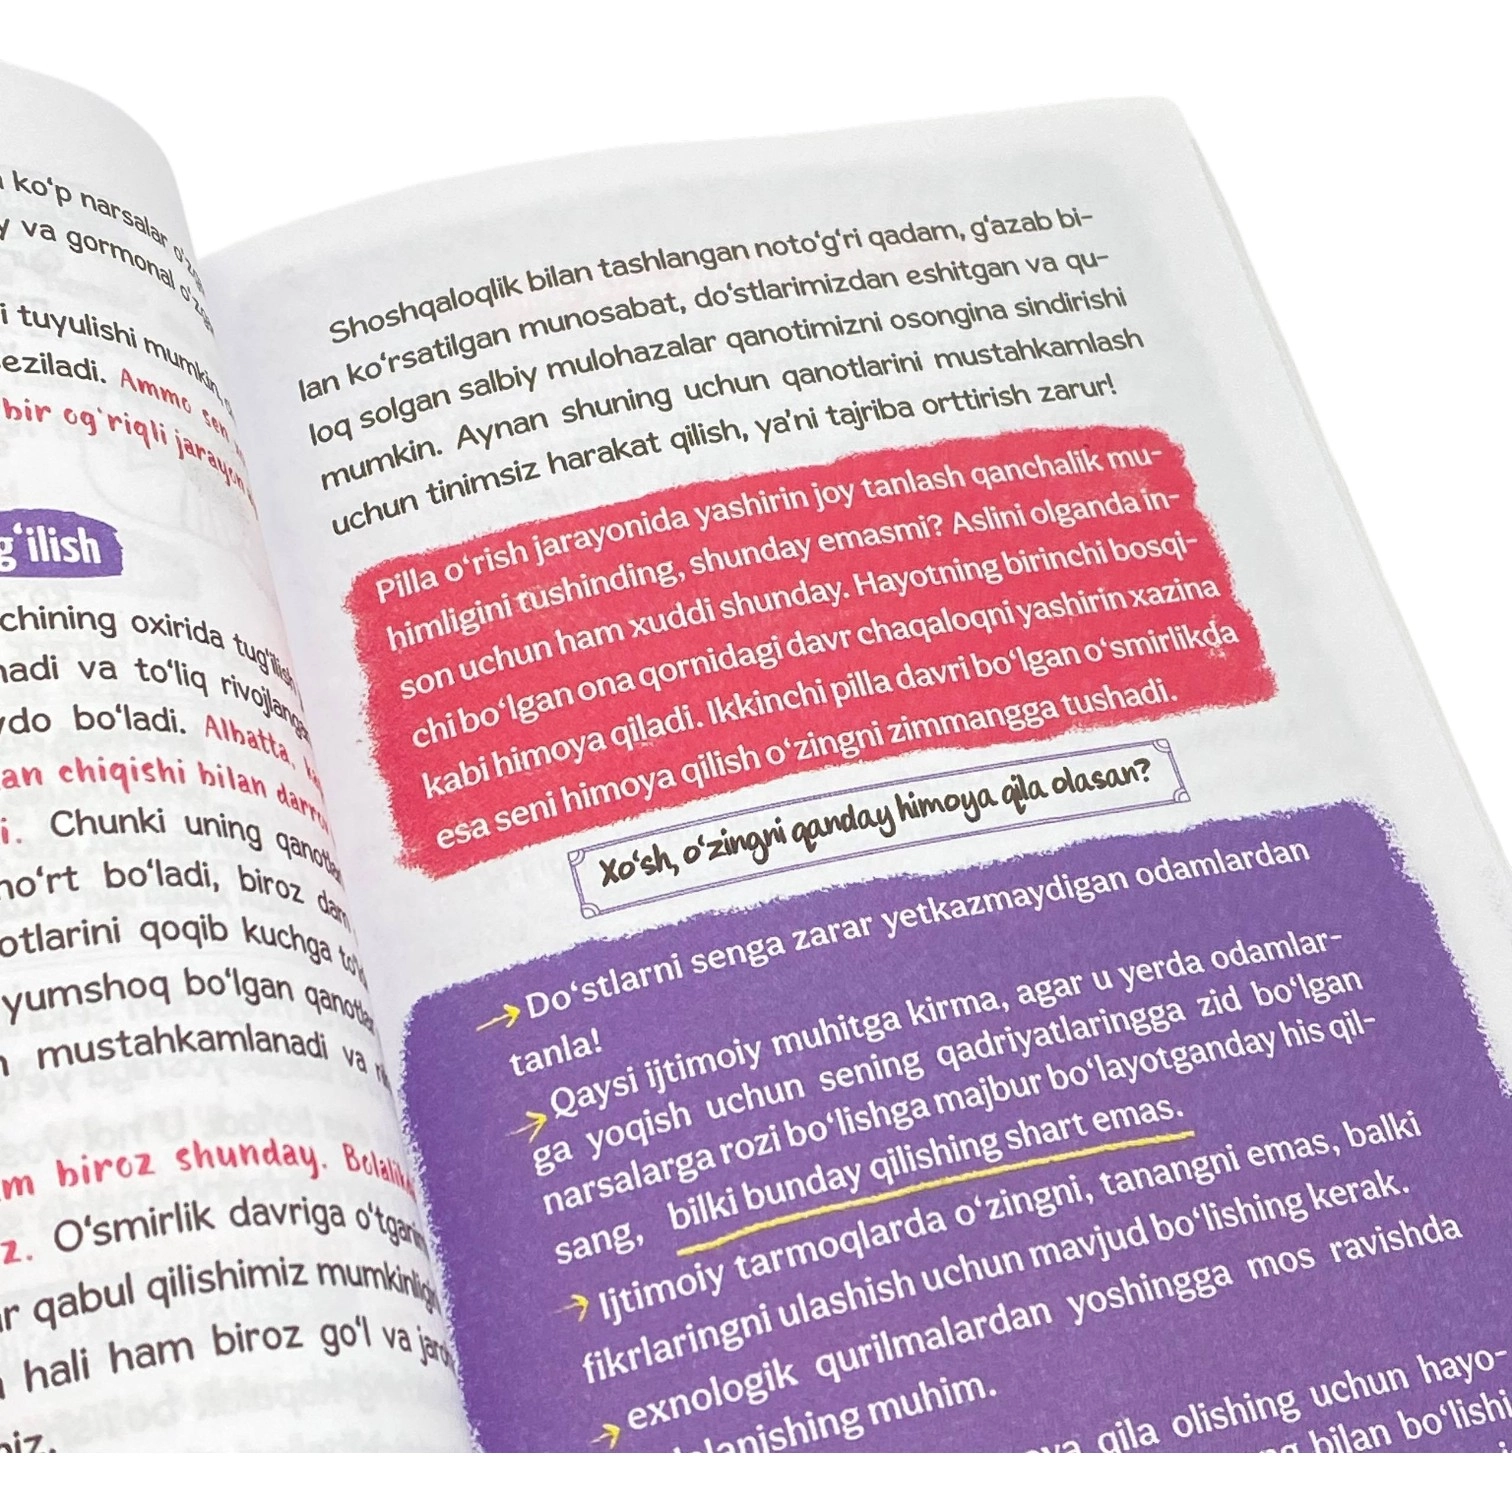 ko‘p narsalar
va gormonal
tuyulishi mumkin,
eziladi. Ammo sen
bir og‘riqli jarayon
g‘ilish
chining oxirida tug‘ilish
va to‘liq rivojlangan
bo‘ladi. Albatta,
an chiqishi bilan darrov
i. Chunki uning qanotlari
bo‘ladi, biroz dam
otlarini qoqib kuchga
yumshoq bo‘lgan qanotlar
mustahkamlanadi va
m biroz shunday. Bolalik
z. O‘smirlik davriga
qabul qilishimiz mumkinligi
hali ham biroz go‘l va
Shoshqaloqlik bilan tashlangan noto‘g‘ri qadam, g‘azab bi-
lan ko‘rsatilgan munosabat, do‘stlarimizdan eshitgan va qu-
loq solgan salbiy mulohazalar qanotimizni osongina sindirishi
mumkin. Aynan shuning uchun qanotlarini mustahkamlash
uchun tinimsiz harakat qilish, ya’ni tajriba orttirish zarur!
Pilla o‘rish jarayonida yashirin joy tanlash qanchalik mu-
himligini tushinding, shunday emasmi? Aslini olganda in-
son uchun ham xuddi shunday. Hayotning birinchi bosqi-
chi bo‘lgan ona qornidagi davr chaqaloqni yashirin xazina
kabi himoya qiladi. Ikkinchi pilla davri bo‘lgan o‘smirlikda
esa seni himoya qilish o‘zingni zimmangga tushadi.
Xo‘sh, o‘zingni qanday himoya qila olasan?
Do‘stlarni senga zarar yetkazmaydigan odamlardan
tanla!
Qaysi ijtimoiy muhitga kirma, agar u yerda odamlar-
ga yoqish uchun sening qadriyatlaringga zid bo‘lgan
narsalarga rozi bo‘lishga majbur bo‘layotganday his qil-
sang, bilki bunday qilishing shart emas.
Ijtimoiy tarmoqlarda o‘zingni, tanangni emas, balki
fikrlaringni ulashish uchun mavjud bo‘lishing kerak.
exnologik qurilmalardan yoshingga mos ravishda
muhim.
qila olishing uchun hayo-
bilan bo‘lishi